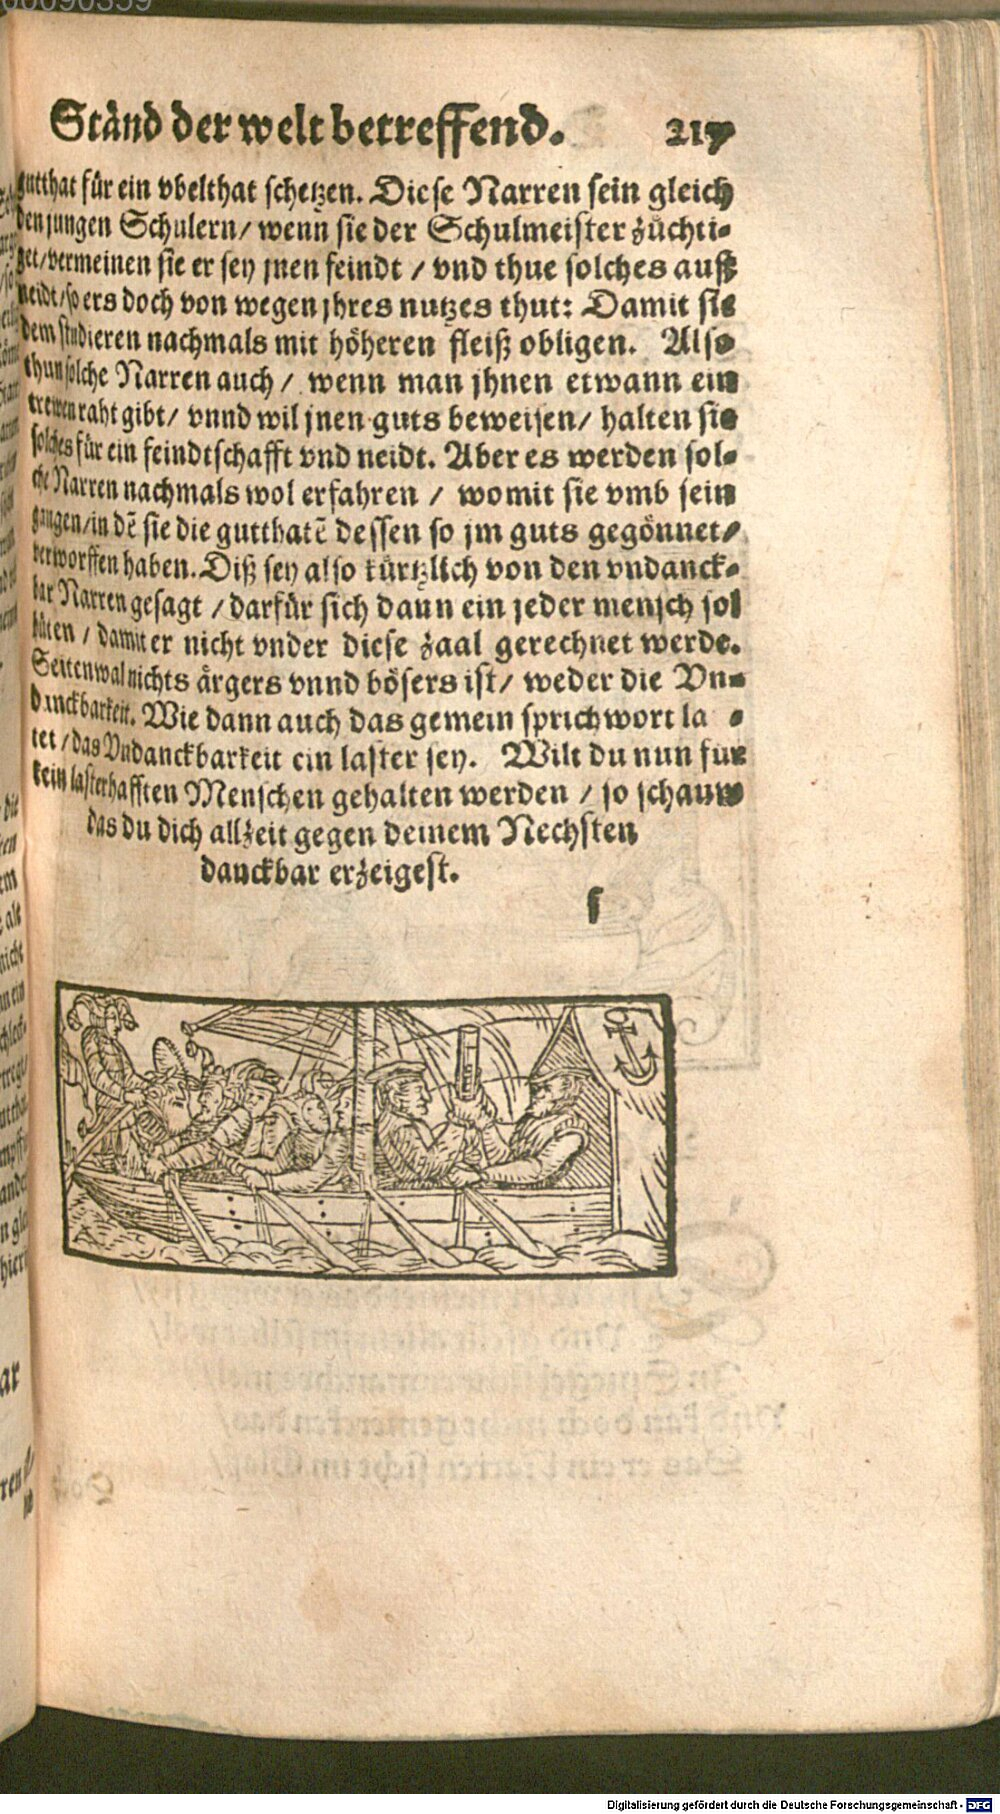 00090359
Ständ der welt betreffend. 217
gutthat für ein vbelthat schetzen. Diese Narren sein gleich
den jungen Schulern / wenn sie der Schulmeister züchti-
get / vermeinen sie er sey jnen feindt / vnd thue solches auß
neidt / so ers doch von wegen jhres nutzes thut: Damit sie
dem studieren nachmals mit höheren fleiß obligen. Also
thun solche Narren auch / wenn man jhnen etwann ein
trewen raht gibt / vnnd wil jnen guts beweisen / halten sie
solches für ein feindtschafft vnd neidt. Aber es werden sol-
che Narren nachmals wol erfahren / womit sie vmb sein
gangen / in dē sie die gutthatē dessen so jm guts gegönnet /
verworffen haben. Diß sey also kürtzlich von den vndanck-
bar Narren gesagt / darfür sich dann ein jeder mensch sol
hüten / damit er nicht vnder diese zaal gerechnet werde.
Seitenwal nichts ärgers vnnd bösers ist / weder die Vn-
danckbarkeit. Wie dann auch das gemein sprichwort la -
tet / das Vndanckbarkeit ein laster sey. Wilt du nun für
kein lasterhafften Menschen gehalten werden / so schauw
das du dich allzeit gegen deinem Nechsten
danckbar erzeigest.
f
Digitalisierung gefördert durch die Deutsche Forschungsgemeinschaft - DFG